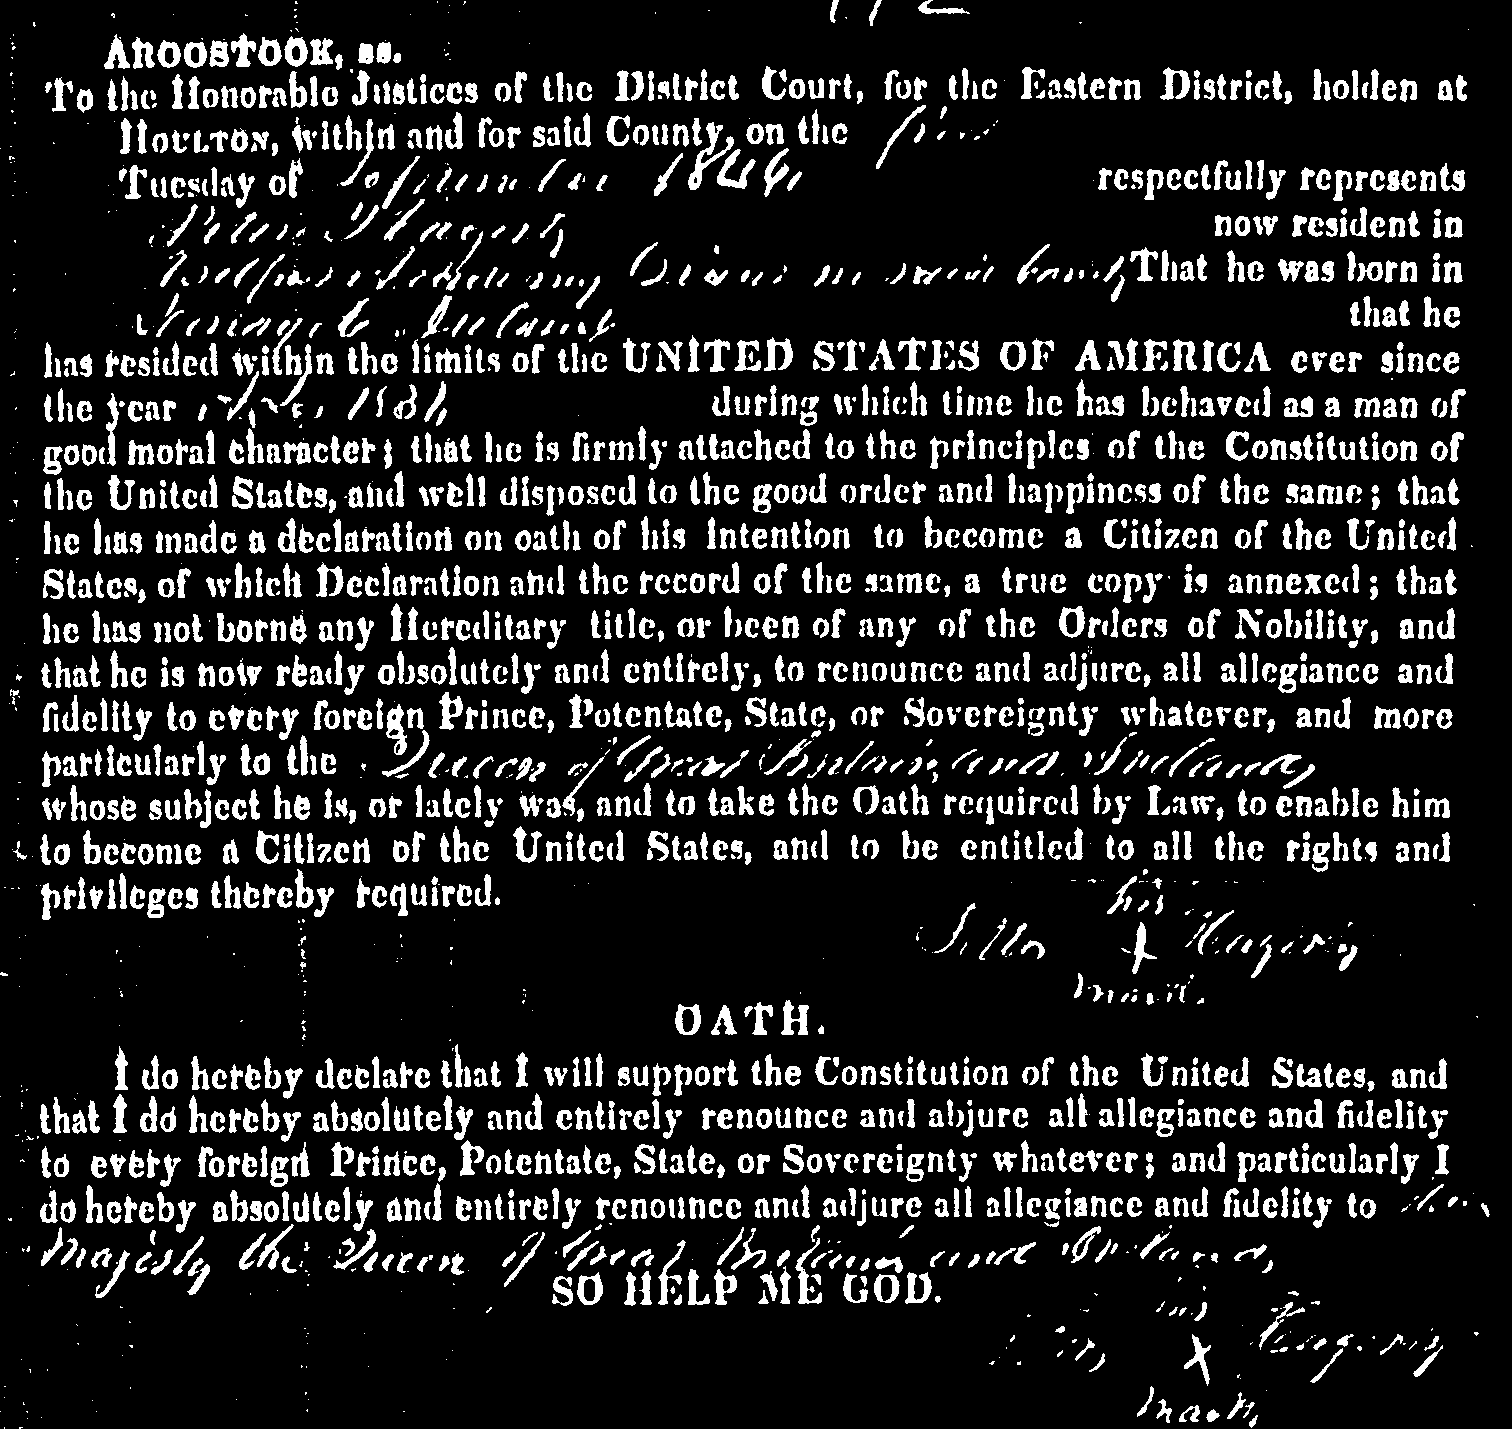 AROOSTOOK, ss.
To the Honorable Justices of the District Court, for the Eastern District, holden at
HOULTON, within and for said County, on the first
Tuesday of September 1846, respectfully represents
Peter Hagerty now resident in
in said County That he was born in
Ireland that he
has resided within the limits of the UNITED STATES OF AMERICA ever since
the year during which time he has behaved as a man of
good moral character; that he is firmly attached to the principles of the Constitution of
the United States, and well disposed to the good order and happiness of the same; that
he has made a declaration on oath of his intention to become a Citizen of the United
States, of which Declaration and the record of the same, a true copy is annexed; that
he has not borne any Hereditary title, or been of any of the Orders of Nobility, and
that he is now ready absolutely and entirely, to renounce and adjure, all allegiance and
fidelity to every foreign Prince, Potentate, State, or Sovereignty whatever, and more
particularly to the Queen of Great Britain, and Ireland,
whose subject he is, or lately was, and to take the Oath required by Law, to enable him
to become a Citizen of the United States, and to be entitled to all the rights and
privileges thereby required.
his
Peter X Hagerty
mark.
OATH.
I do hereby declare that I will support the Constitution of the United States, and
that I do hereby absolutely and entirely renounce and abjure all allegiance and fidelity
to every foreign Prince, Potentate, State, or Sovereignty whatever; and particularly I
do hereby absolutely and entirely renounce and adjure all allegiance and fidelity to her
Majesty the Queen of Great Britain and Ireland,
SO HELP ME GOD.
his
Peter X Hagerty
mark,